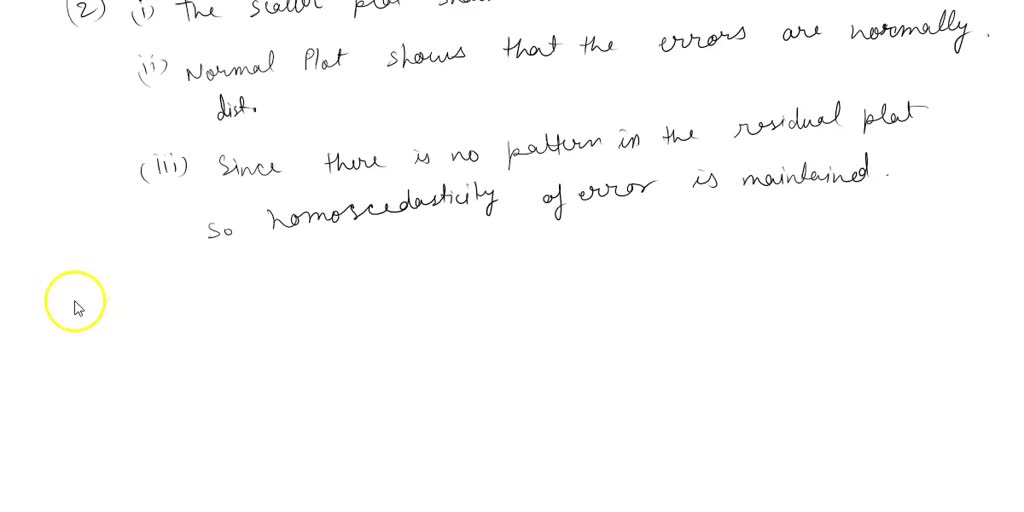 (2) (i) The scatter plot
(ii) Normal Plot shows that the errors are normally
dist.
(iii) Since there is no pattern in the residual plot
so homoscedasticity of error is maintained.